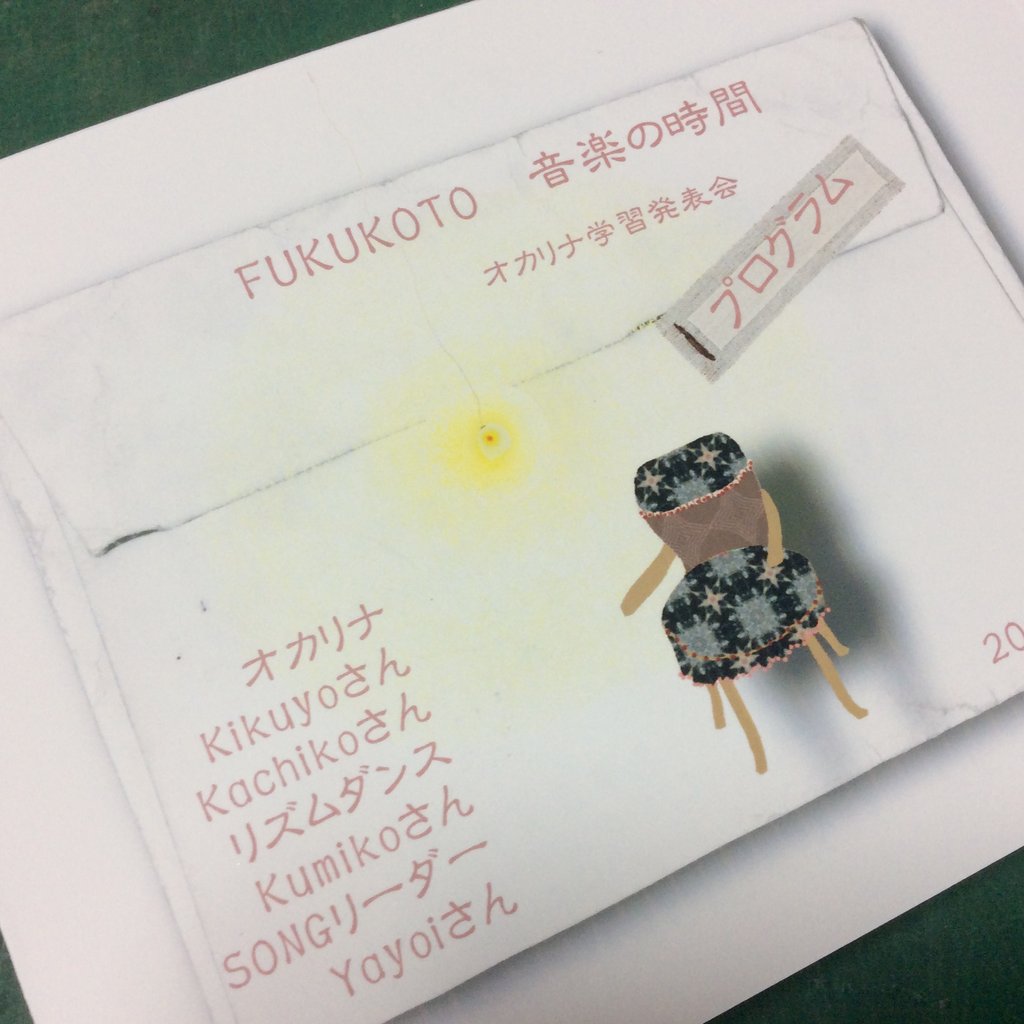 FUKUKOTO 音楽の時間
オカリナ学習発表会
プログラム
オカリナ
Kikuyoさん
Kachikoさん
リズムダンス
Kumikoさん
SONGリーダー
Yayoiさん
20